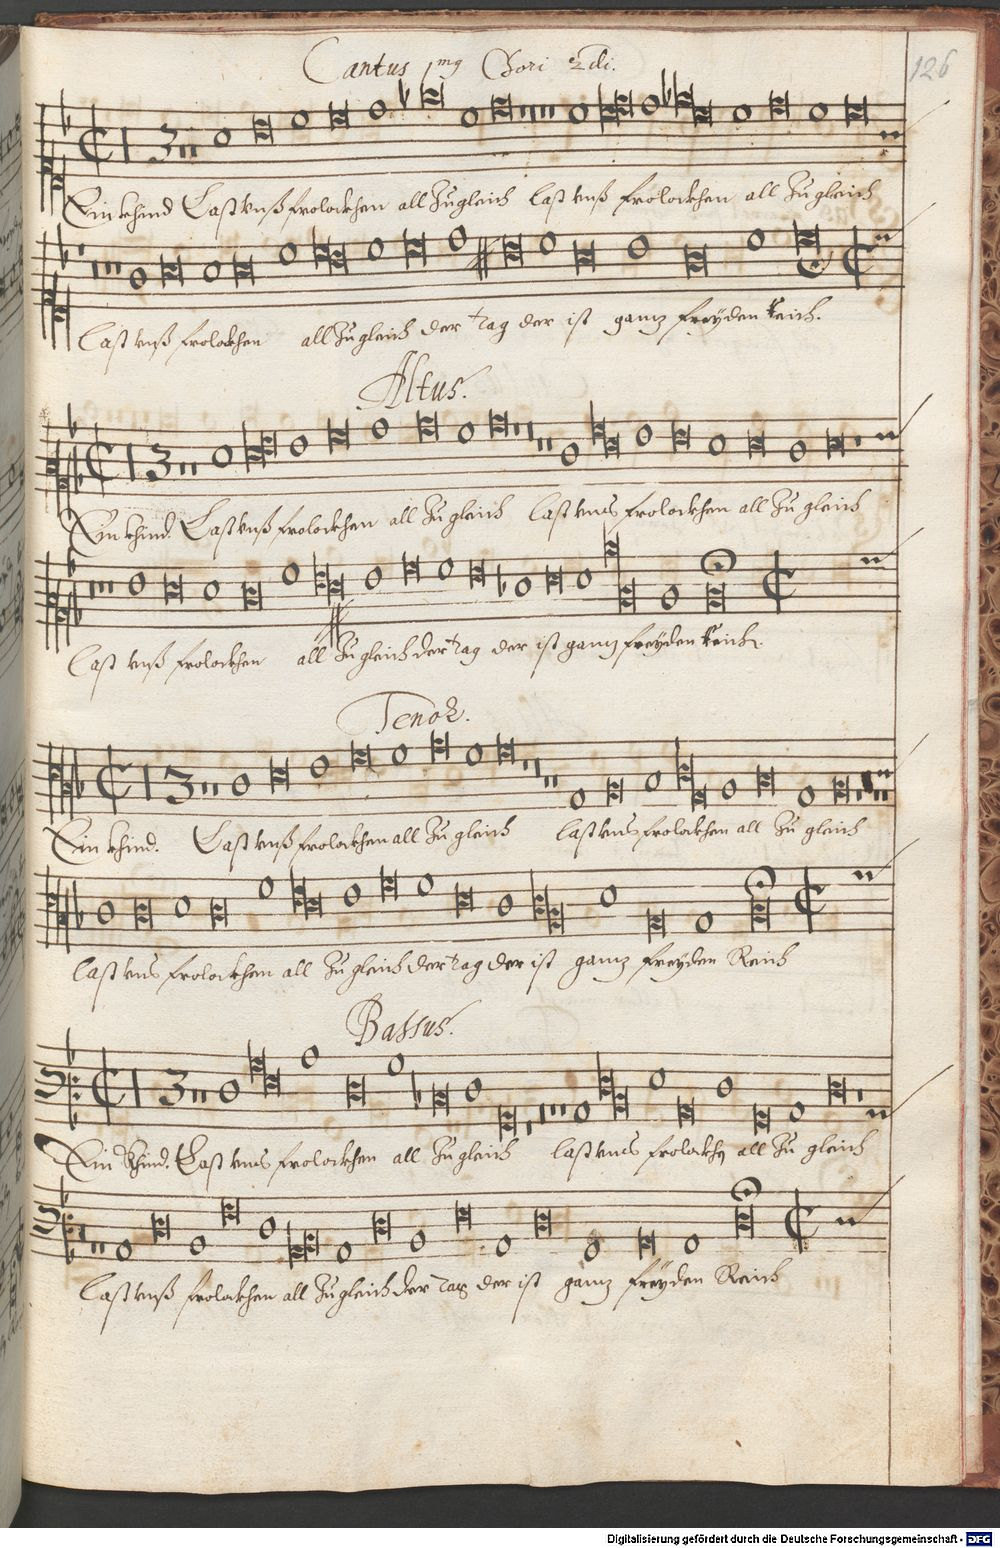 126
Cantus 1mg Chori 2di.
Ein khind Last vnß frolockhen all Zugleich last vnß frolockhen all Zu gleich
last vnß frolockhen all Zu gleich der tag der ist gantz freyden reich.
Altus.
Ein khind. Last vnß frolockhen all Zu gleich last vnns frolockhen all Zu gleich
last vnß frolockhen all Zu gleich der tag der ist gantz freyden reich.
Tenor.
Ein khind. Last vnß frolockhen all Zu gleich last vns frolockhen all Zu gleich
last vns frolockhen all Zu gleich der tag der ist gantz freyden Reich
Bassus.
Ein Khind. Last vnns frolockhen all Zu gleich last vnns all Zu gleich
last vnß frolockhen all Zu gleich der tag der ist gantz freyden Reich
Digitalisierung gefördert durch die Deutsche Forschungsgemeinschaft - DFG